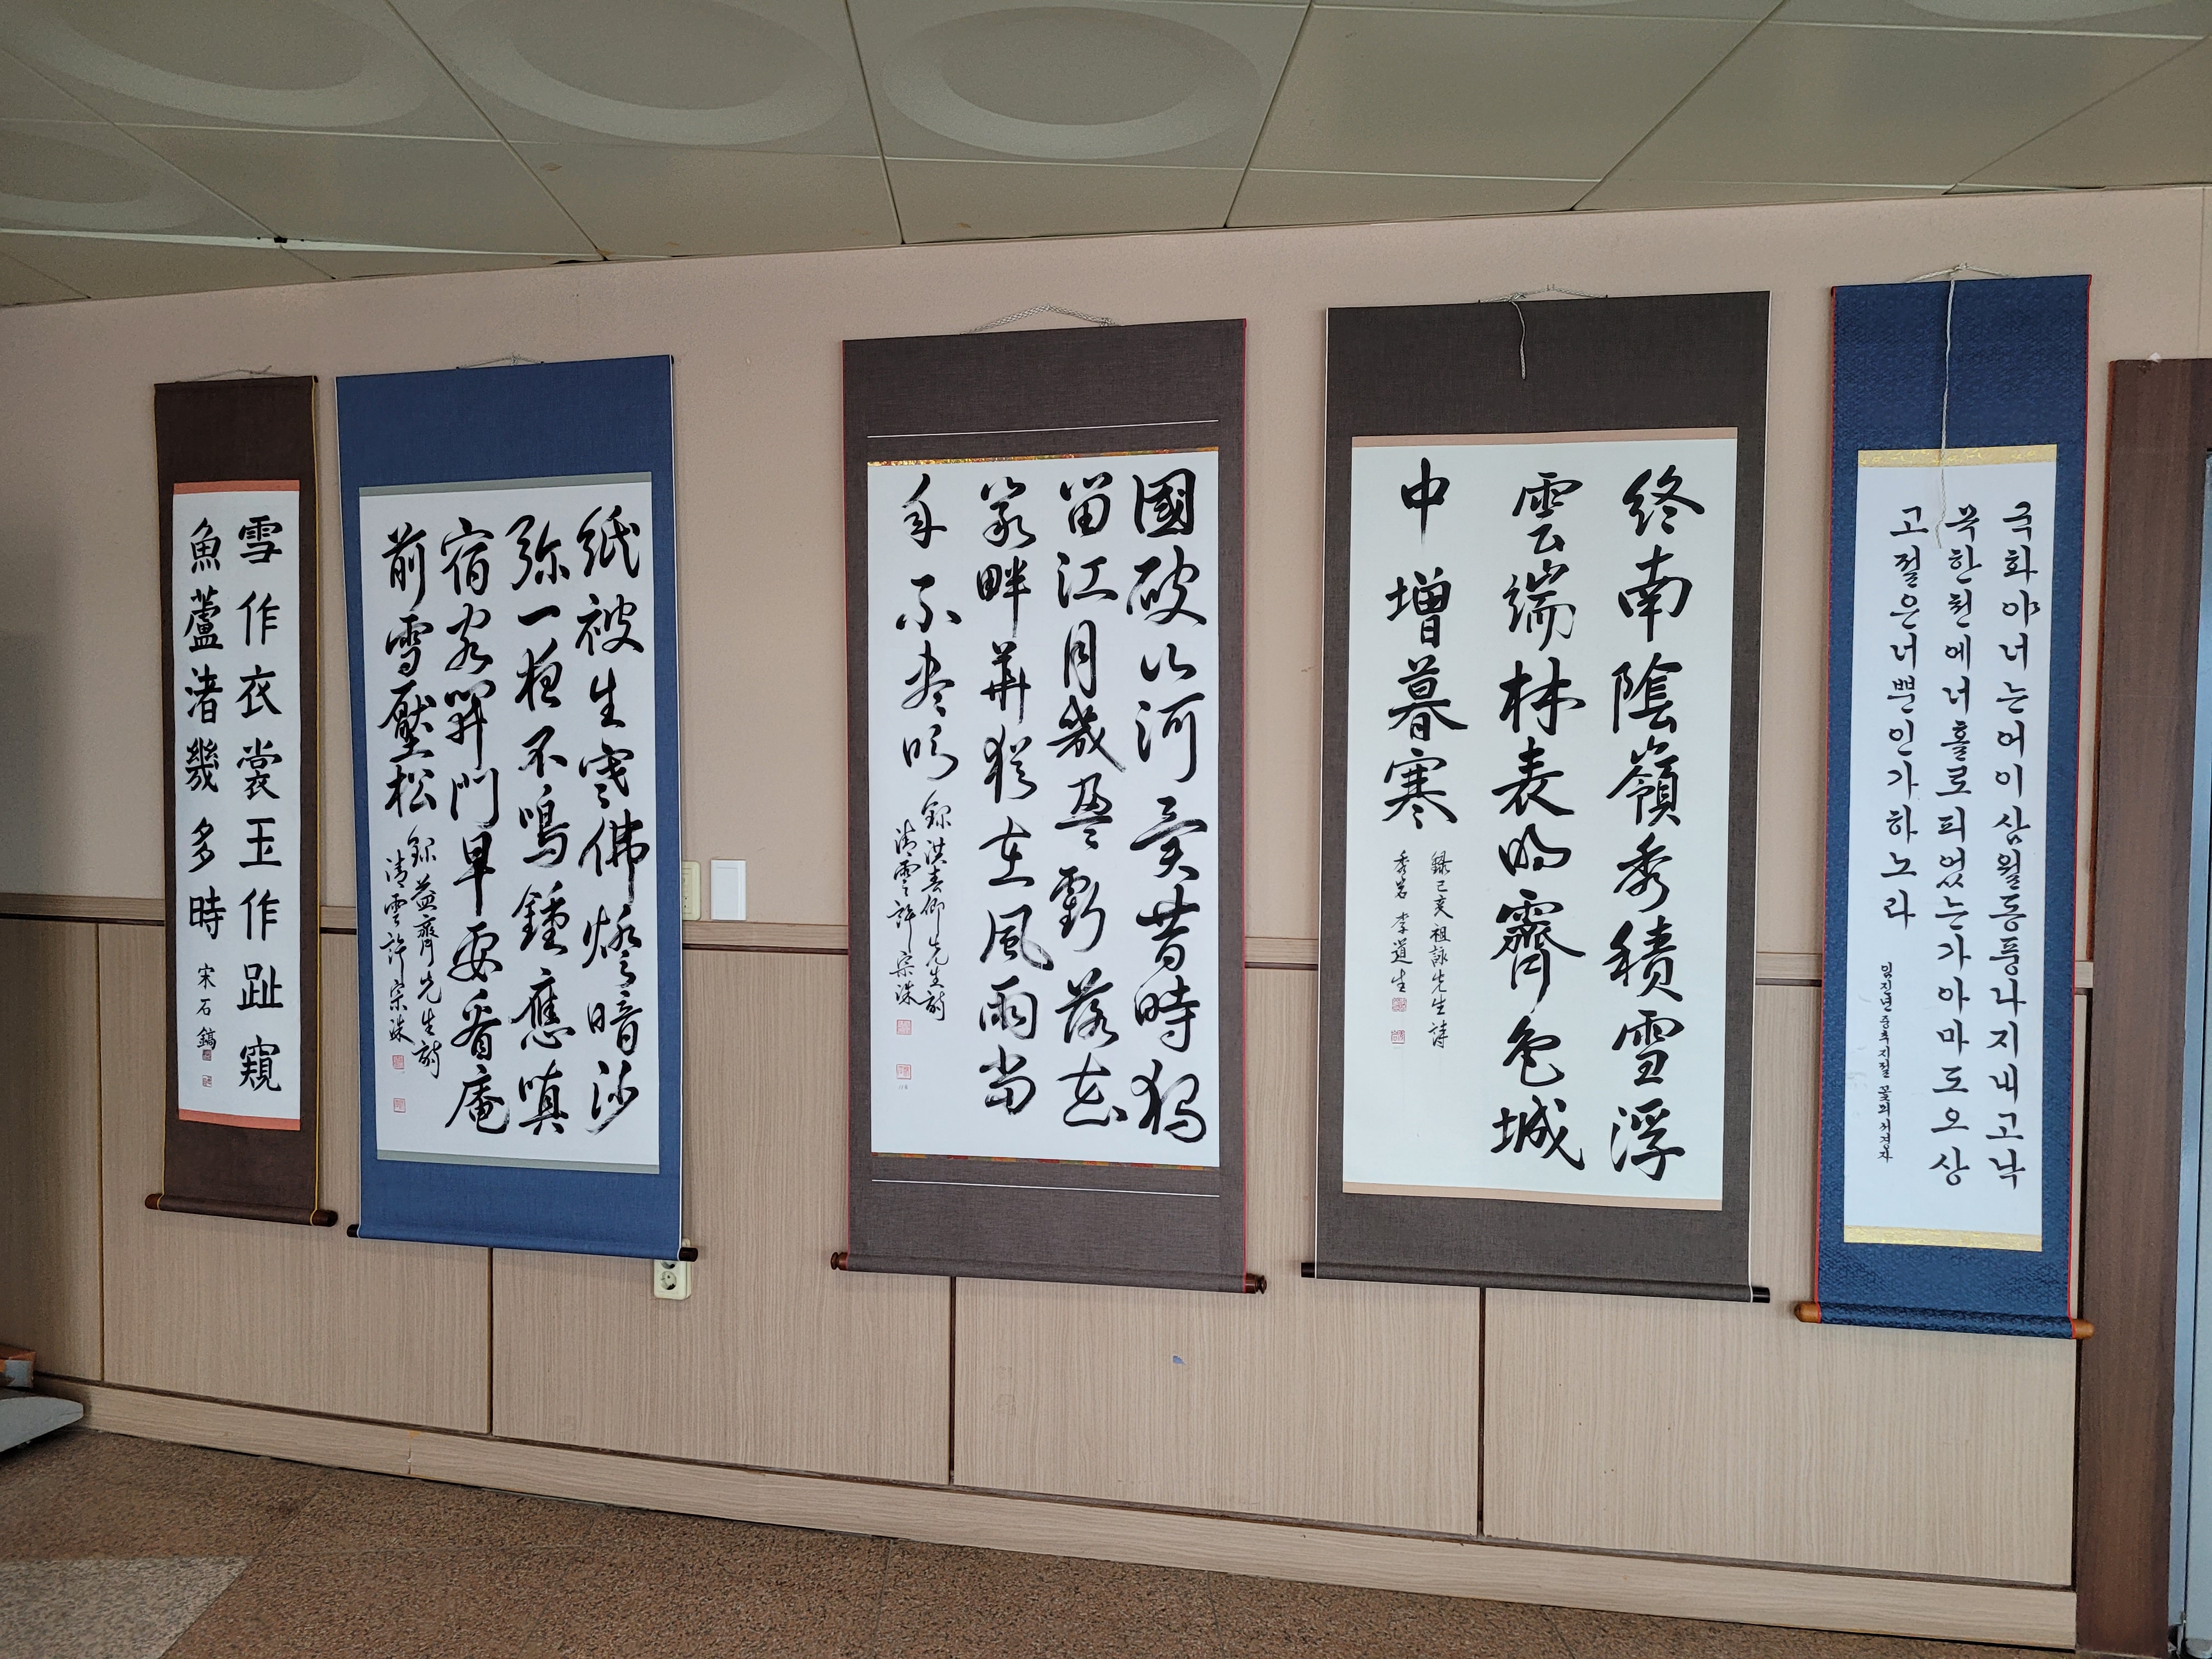 국화야너는어이삼월동풍다지내고낙
목한천에너홀로피었는가아마도오상
고절은너뿐인가하노라
임진년중추지절 꽃뫼서경자
終南陰嶺秀積雪浮
雲端林表明霽色城
中增暮寒
錄己亥祖詠先生詩
秀岩 李道生
國破山河異昔時獨
留江月幾盈虧落花
巖畔華猶在風雨當
年不盡吹
錄洪春卿先生詩
清雲許宗洙
紙被生寒佛燈暗沙
弥一夜不鳴鍾應嗔
宿客開門早要看庵
前雪壓松
錄益齊先生詩
清雲許宗洙
雪作衣裳玉作趾窺
魚蘆渚幾多時
宋石鎬